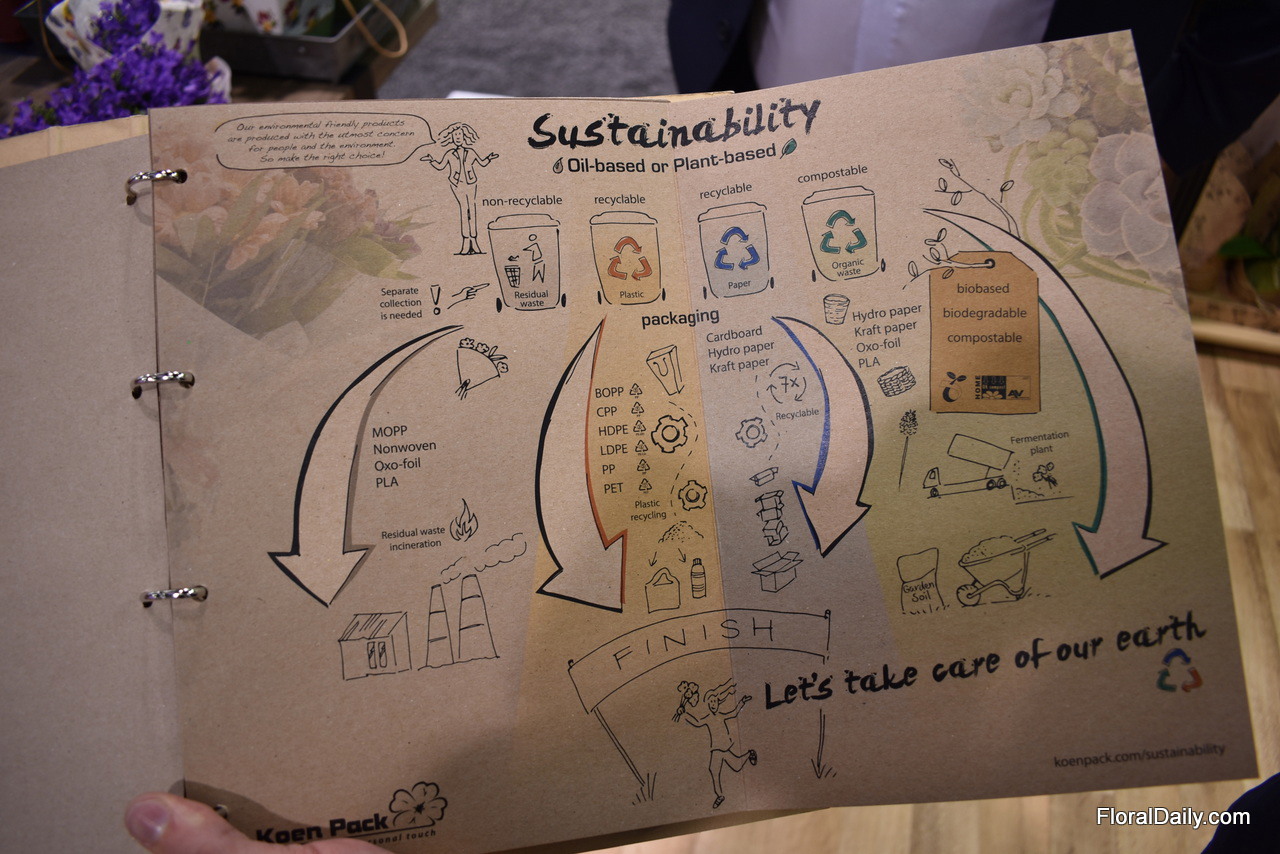 Our environmental friendly products
are produced with the utmost concern
for people and the environment.
So make the right choice!
Sustainability
Oil-based or Plant-based
non-recyclable
recyclable
recyclable
compostable
Residual
waste
Plastic
Paper
Organic
waste
Separate
collection
is needed
!
packaging
MOPP
Nonwoven
Oxo-foil
PLA
Residual waste
incineration
BOPP
CPP
HDPE
LDPE
PP
PET
Plastic
recycling
Cardboard
Hydro paper
Kraft paper
7x
Recyclable
Hydro paper
Kraft paper
Oxo-foil
PLA
biobased
biodegradable
compostable
HOME
Fermentation
plant
Garden
Soil
FINISH
Let's take care of our earth
koenpack.com/sustainability
Koen Pack
personal touch
FloralDaily.com